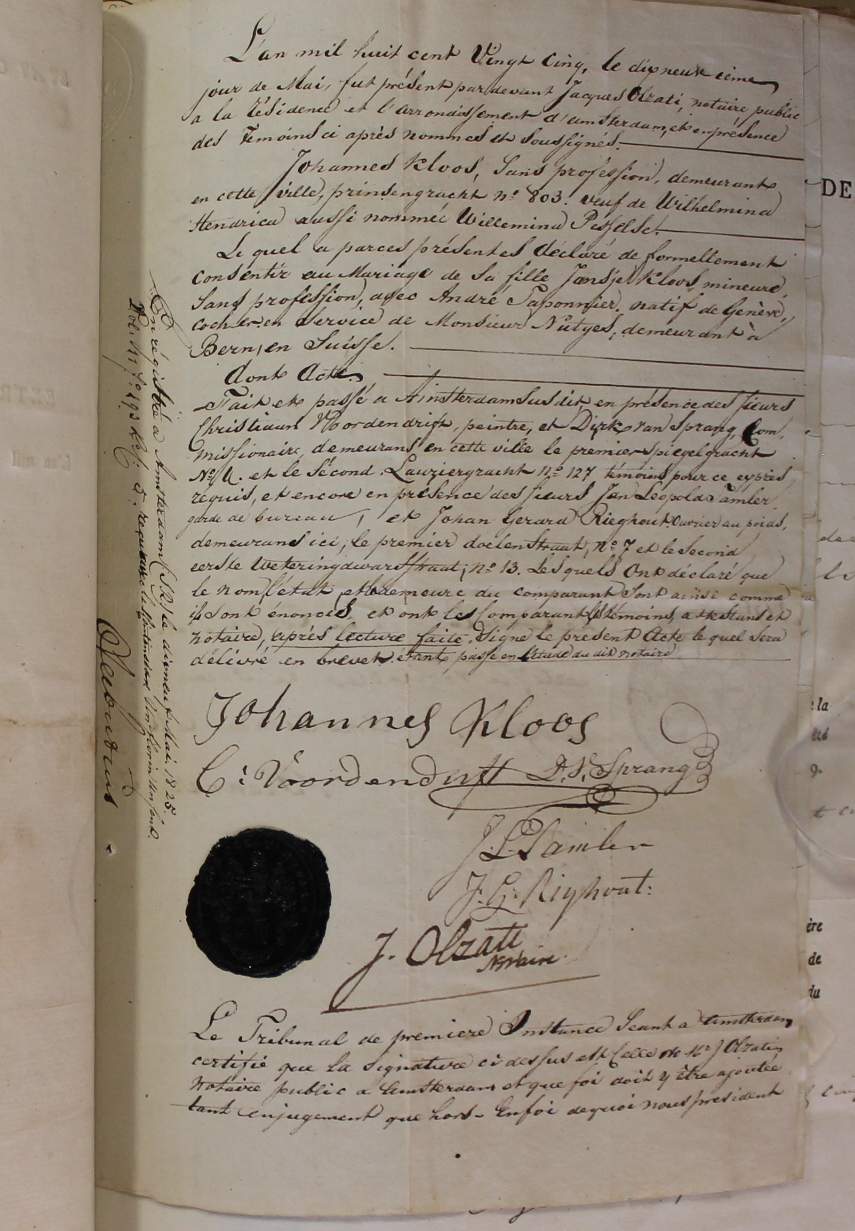 L'an mil huit cent Vingt Cinq, le dixneuvieme
jour de Mai, fut présent pardevant Jacques Olzati, notaire public
a la Résidence et l'arrondissement d'amsterdam, et en présence
des Temoins ci après nommes et Soussignés.
Johannes Kloos, Sans proféssion, demeurant
en cette ville, prinsengracht nº 803. veuf de Wilhelmina
Hendrica aussi nommée Willemina
Le quel a par ces présentes déclaré de formellement
Consentir au Mariage de Sa fille Jansje Kloos, mineure,
Sans proféssion, avec André Taponnier, natif de Genève,
cocher en Service de Monsieur Nutges, demeurant à
Bern, en Suisse.
dont Acte.
Fait et passé a Amsterdam susdit en présence des sieurs
Christiaan Noordendrift, peintre, et Dirk van Sprang, Com,
missionaire, demeurans en cette ville le premier spiegelgracht
Nº 4. et le Sécond Lauriergracht Nº 127 témoins pour ce exprès
réquis, et encore en présence des sieurs Jan Leopold Samler,
garde de bureau, et Johan Gerard Righout ouvrier au poids,
demeurans ici, le premier doelenstraat, Nº 7 et le Second
eerste Weteringdwarsstraat, Nº 13. Lesquels Ont déclaré que
le nom l'état et demeure du comparant Sont ainsi comme
ils sont énoncés, et ont les Comparant témoins, attestans et
Notaire, après lecture faite, Signé le présent Acte lequel Sera
délivré en brevet étant passé en l'étude du dit notaire
Johannes Kloos
C: Noordendrift D. V. Sprang
J. L. Samler
J. G. Righout:
J. Olzati
Notaire
Le Tribunal de premiere Instance Seant a Amsterdam
certifie que la Signature ci dessus est Celle de Mr J Olzati
Notaire public a Amsterdam et que foi doit y être ajoutée
tant en jugement que hors. En foi de quoi nous président
Enrégistré a Amsterdam le dixneuf Mai 1825.
DE
la
ère
de
du